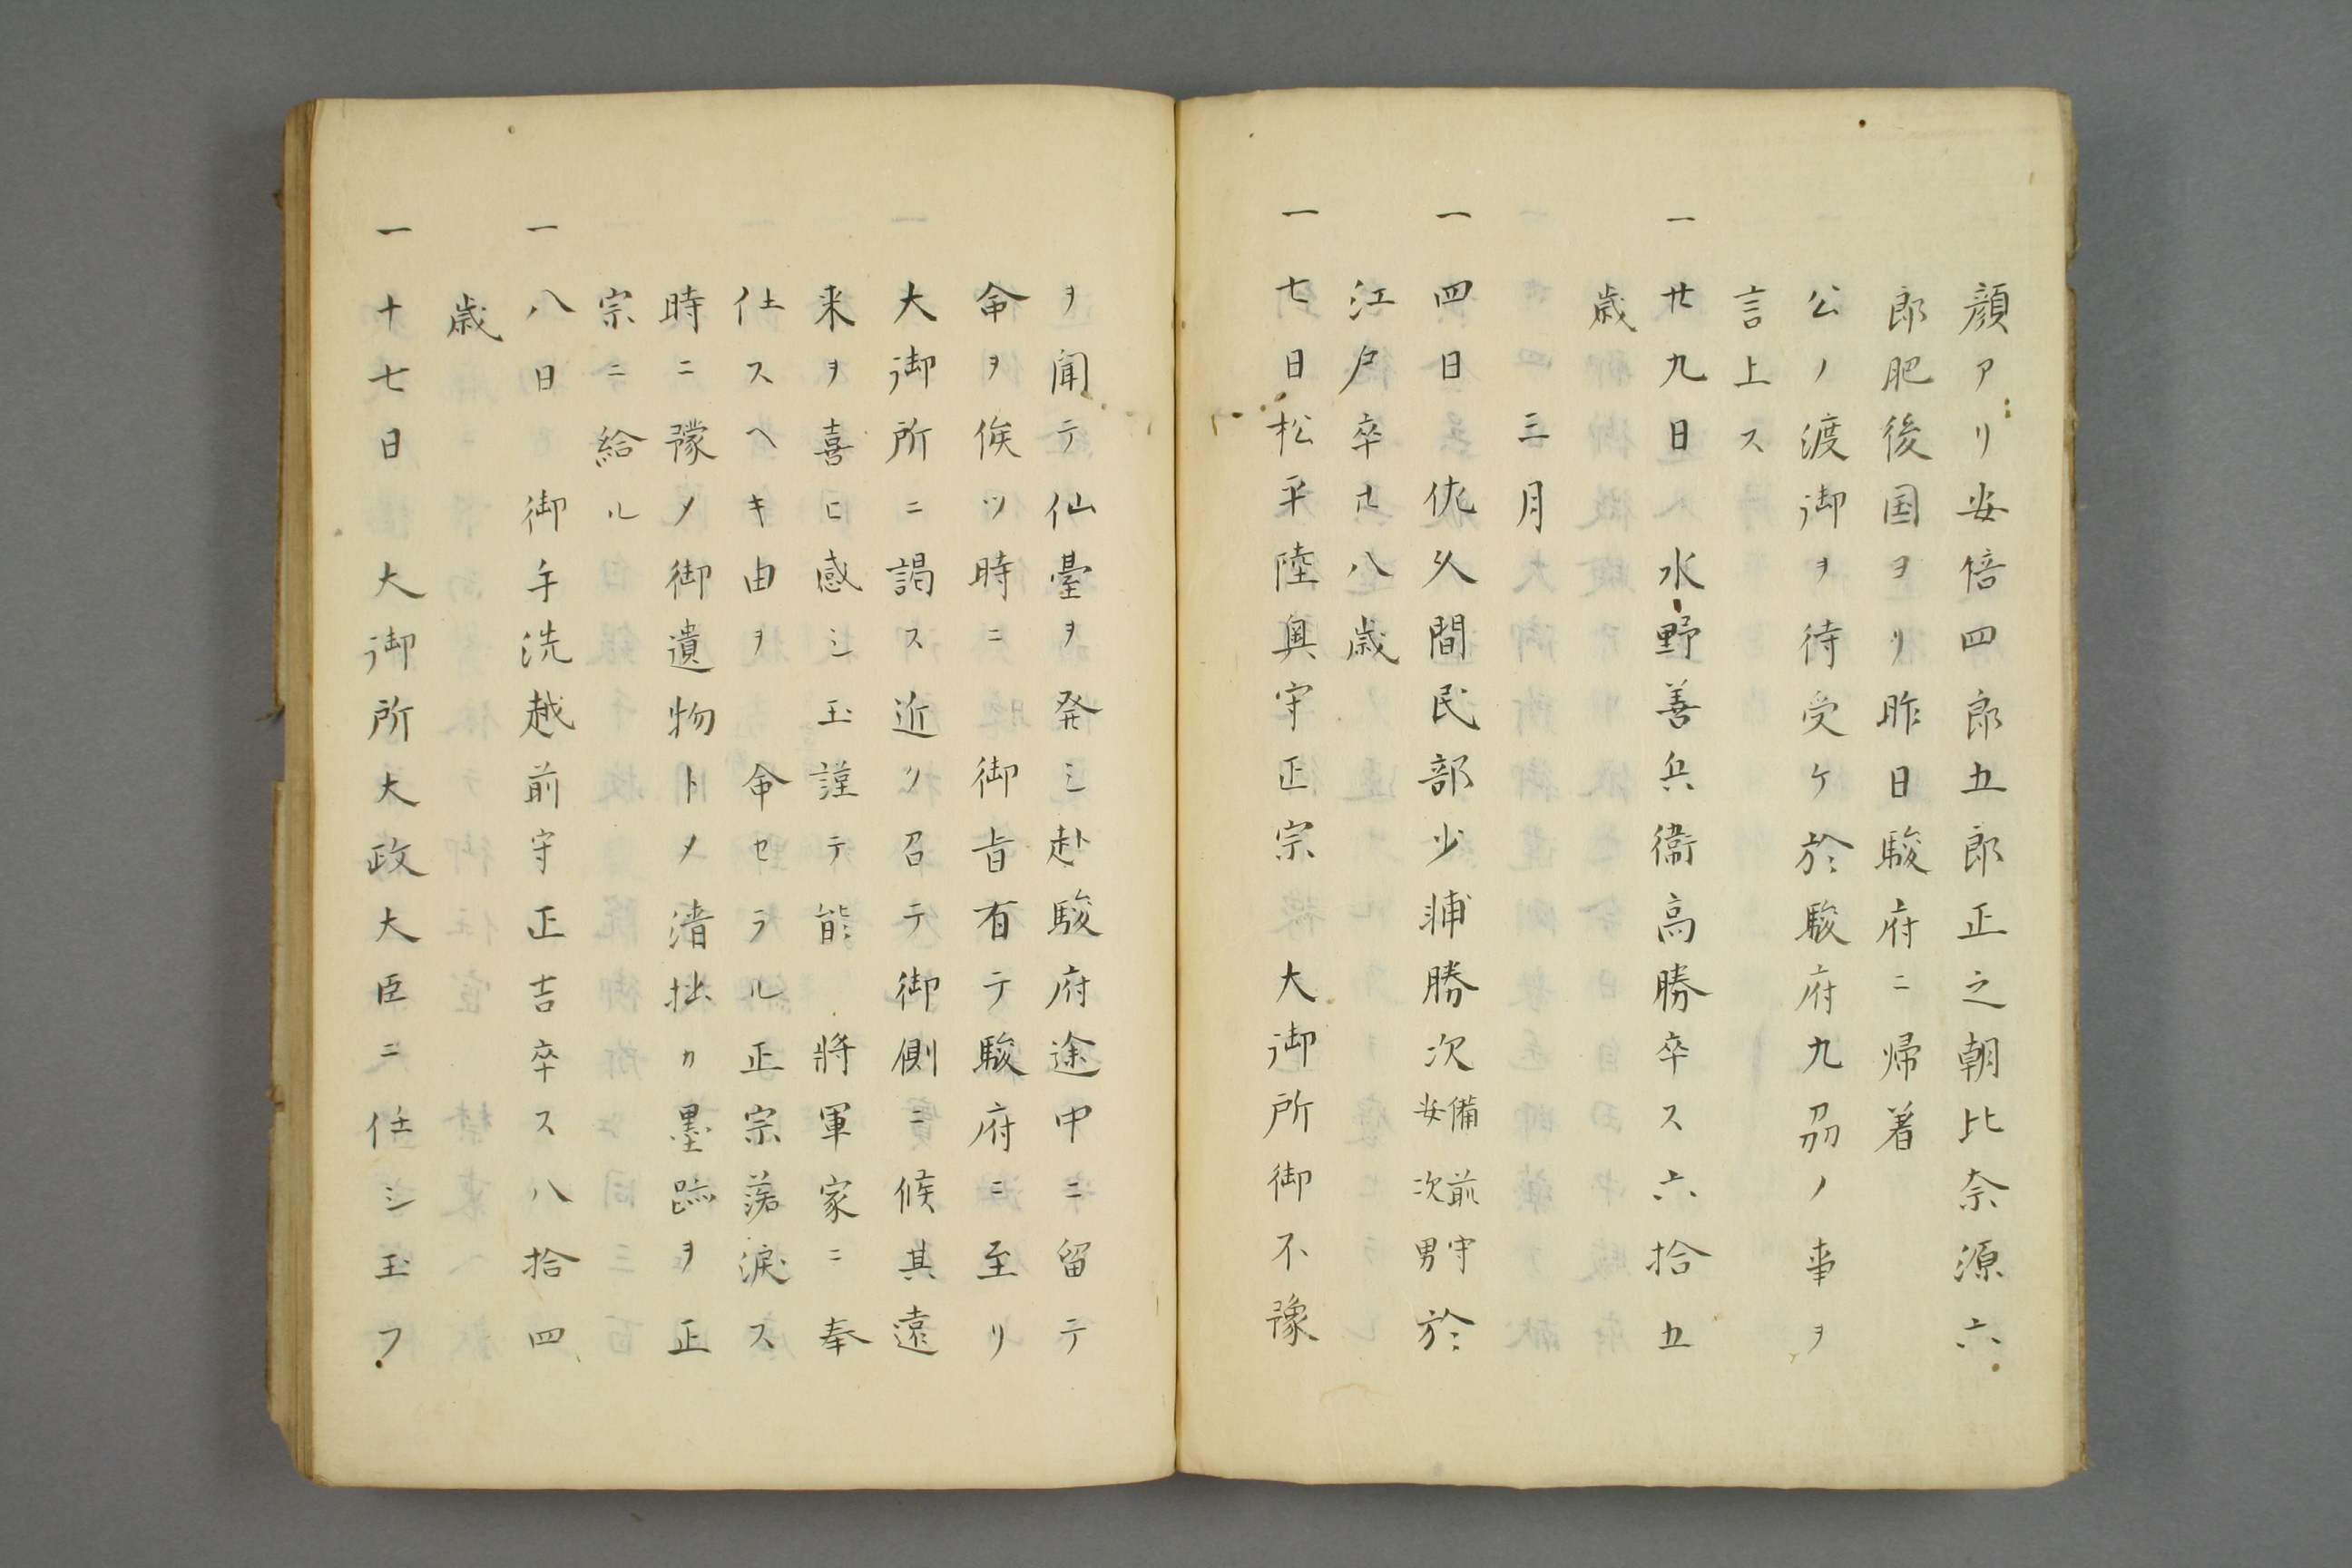 顔アリ安倍四郎五郎正之朝比奈源六
郎肥後国ヨリ昨日駿府ニ帰着
公ノ渡御ヲ待受ケ於駿府九刕ノ事ヲ
言上ス
一廿九日 水野善兵衞高勝卒ス六拾五
歳
三月
一四日 佐久間民部少輔勝次備前守安次男於
江戸卒廿八歳
一七日松平陸奥守正宗 大御所御不豫
ヲ聞テ仙臺ヲ発シ赴駿府途中ニ留テ
命ヲ俟ツ時ニ 御旨有テ駿府ニ至リ
大御所ニ謁ス近ク召テ御側ニ候其遠
来ヲ喜ヒ感シ玉謹テ能 将軍家ニ奉
仕スヘキ由ヲ 命セラル正宗落涙ス
時ニ豫ノ御遺物トメ清拙カ墨跡ヲ正
宗ニ給ル
一八日 御手洗越前守正吉卒ス八拾四
歳
一十七日 大御所大政大臣ニ任シ玉フ